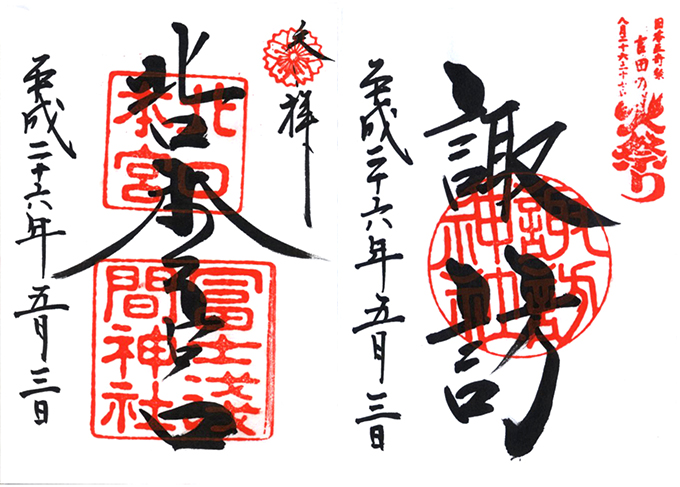 日本三奇祭
吉田の
火祭り
八月二十六二十七日
諏訪
諏訪
神社
平成二十六年五月三日
奉拝
北口本宮
北口
本宮
冨士浅
間神社
平成二十六年五月三日